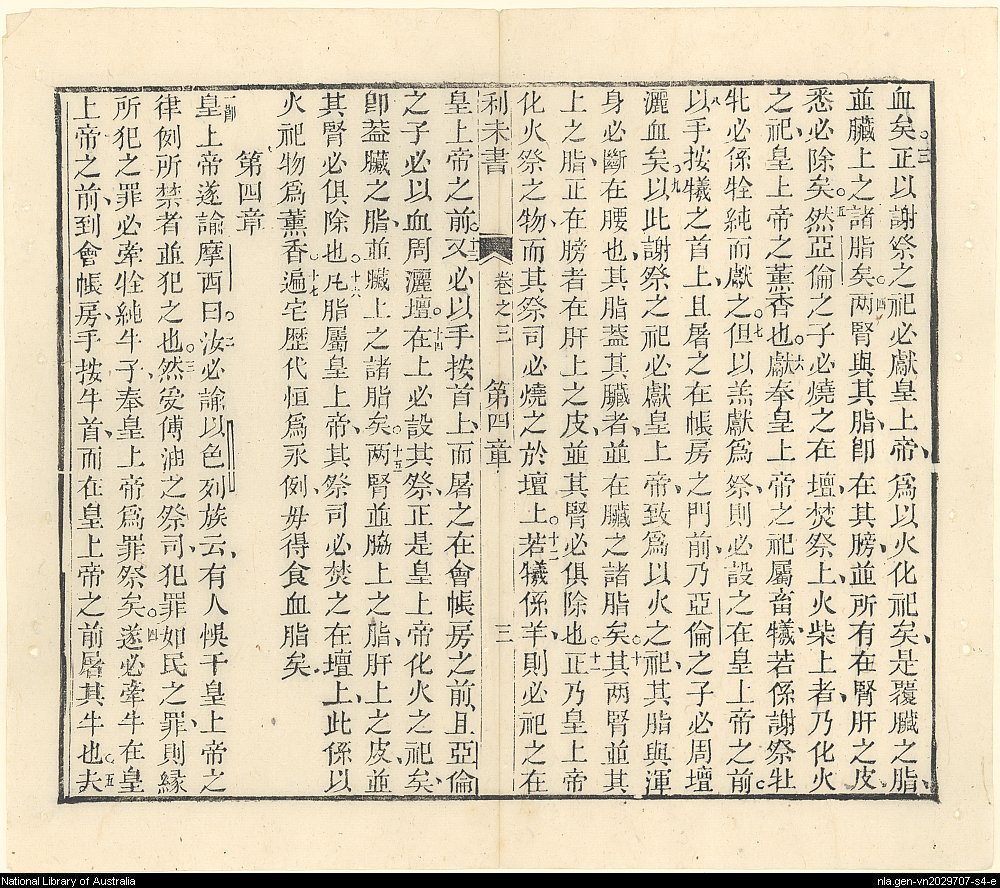 血矣。三正以謝祭之祀必獻皇上帝、爲以火化祀矣、是覆臟之脂、
並臟上之諸脂矣。四两腎與其脂卽在其膀、並所有在腎肝之皮、
悉必除矣。五然亞倫之子必燒之在壇、焚祭上火柴上者、乃化火
之祀皇上帝之薰香也。六獻奉皇上帝之祀屬畜犧、若係謝祭牡
牝必係牷純而獻之。七但以羔獻爲祭、則必設之在皇上帝之前。
八以手按犧之首上、且屠之在帳房之門前、乃亞倫之子必周壇
灑血矣。九以此謝祭之祀必獻皇上帝、致爲以火之祀、其脂與渾
身必斷在腰也、其脂葢其臟者、並在臟之諸脂矣。十其两腎並其
上之脂正在膀者在肝上之皮、並其腎必俱除也。十一正乃皇上帝
化火祭之物、而其祭司必燒之於壇上。十二若犧係羊、則必祀之在
利未書 卷之三 第四章 三
皇上帝之前。十三又必以手按首上、而屠之在會帳房之前、且亞倫
之子必以血周灑壇。十四在上必設其祭、正是皇上帝化火之祀矣、
卽葢臟之脂、並臟上之諸脂矣。十五两腎並脇上之脂、肝上之皮、並
其腎必俱除也。十六凡脂屬皇上帝、其祭司必焚之在壇上、此係以
火祀物爲薰香。十七遍宅歷代恒爲永例、毋得食血脂矣。
第四章
一節皇上帝遂諭摩西曰。二汝必諭以色列族云、有人悞干皇上帝之
律例所禁者並犯之也。三然受傅油之祭司、犯罪如民之罪、則緣
所犯之罪必牽牷純牛子、奉皇上帝爲罪祭矣。四遂必牽牛在皇
上帝之前、到會帳房、手按牛首、而在皇上帝之前屠其牛也。五夫
National Library of Australia
nla.gen-vn2029707-s4-e